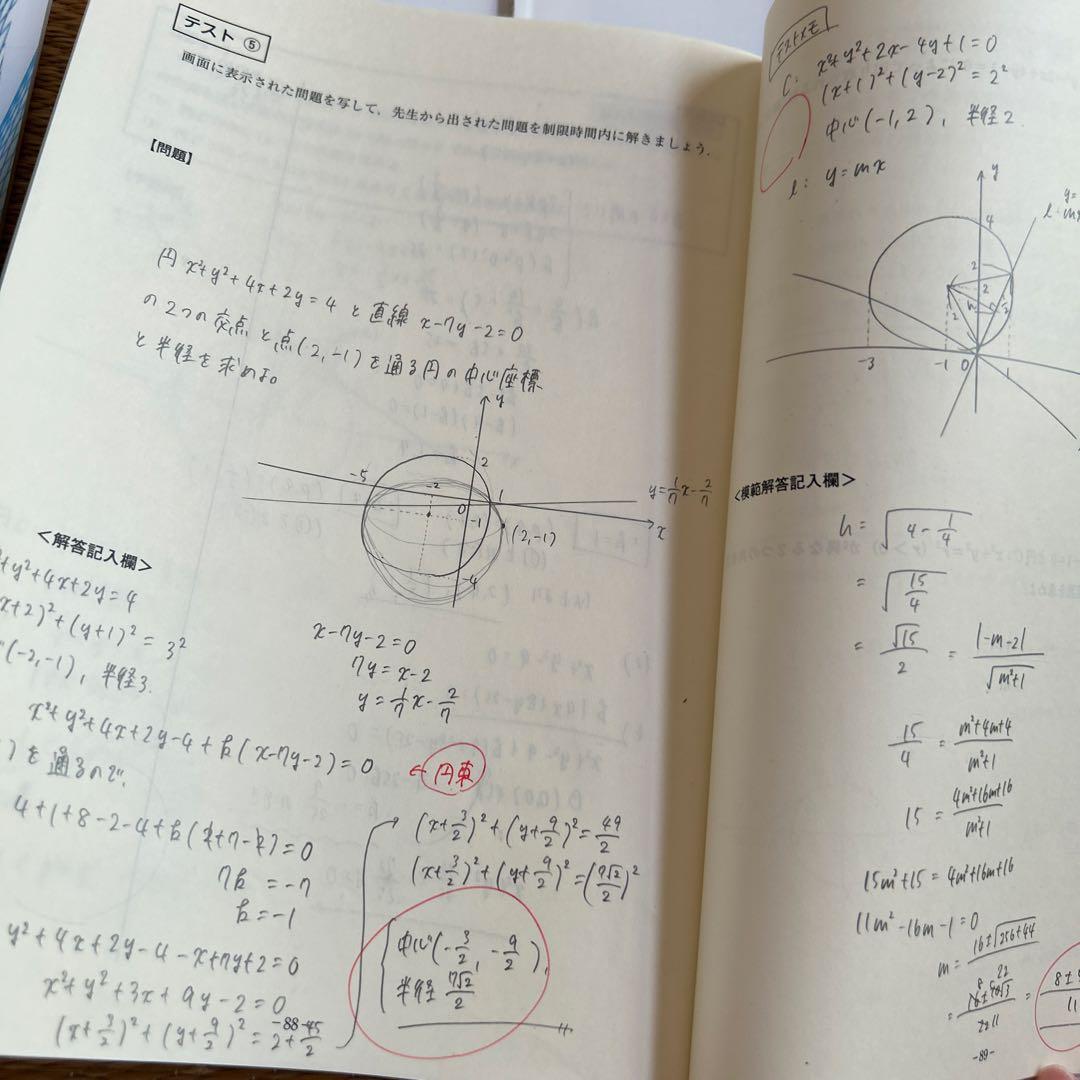 テスト ⑤
画面に表示された問題を写して、先生から出された問題を制限時間内に解きましょう.
【問題】
円 x²+y²+4x+2y=4 と直線 x-7y-2=0
の2つの交点と点(2,-1)を通る円の中心座標
と半径を求めよ。
y
2
-5
-2
0
1
-1
y=1/7x-2/7
x
(2,-1)
-4
<解答記入欄>
+y²+4x+2y=4
x+2)²+(y+1)²=3²
(-2,-1), 半径3.
x-7y-2=0
7y=x-2
y=1/7x-2/7
x²+y²+4x+2y-4+k(x-7y-2)=0
← 円束
)を通るので
4+1+8-2-4+k(2+7-2)=0
7k=-7
k=-1
y²+4x+2y-4-x+7y+2=0
x²+y²+3x+9y-2=0
(x+3/2)²+(y+9/2)²=2+45/2
(x+3/2)²+(y+9/2)²=49/2
(x+3/2)²+(y+9/2)²=(7√2/2)²
中心(-3/2,-9/2),
半径 7√2/2
-88-
テストメモ
C: x²+y²+2x-4y+1=0
(x+1)²+(y-2)²=2²
中心(-1,2), 半径2.
l: y=mx
y
y=
l:
4
2
2
2
h
-3
-1
0
1
<模範解答記入欄>
h=√(4-1/4)
=√(15/4)
=√15/2=|-m-2|/√(m²+1)
15/4=(m²+4m+4)/(m²+1)
15=(4m²+16m+16)/(m²+1)
15m²+15=4m²+16m+16
11m²-16m-1=0
m=(16±√(256+44))/22
-89-